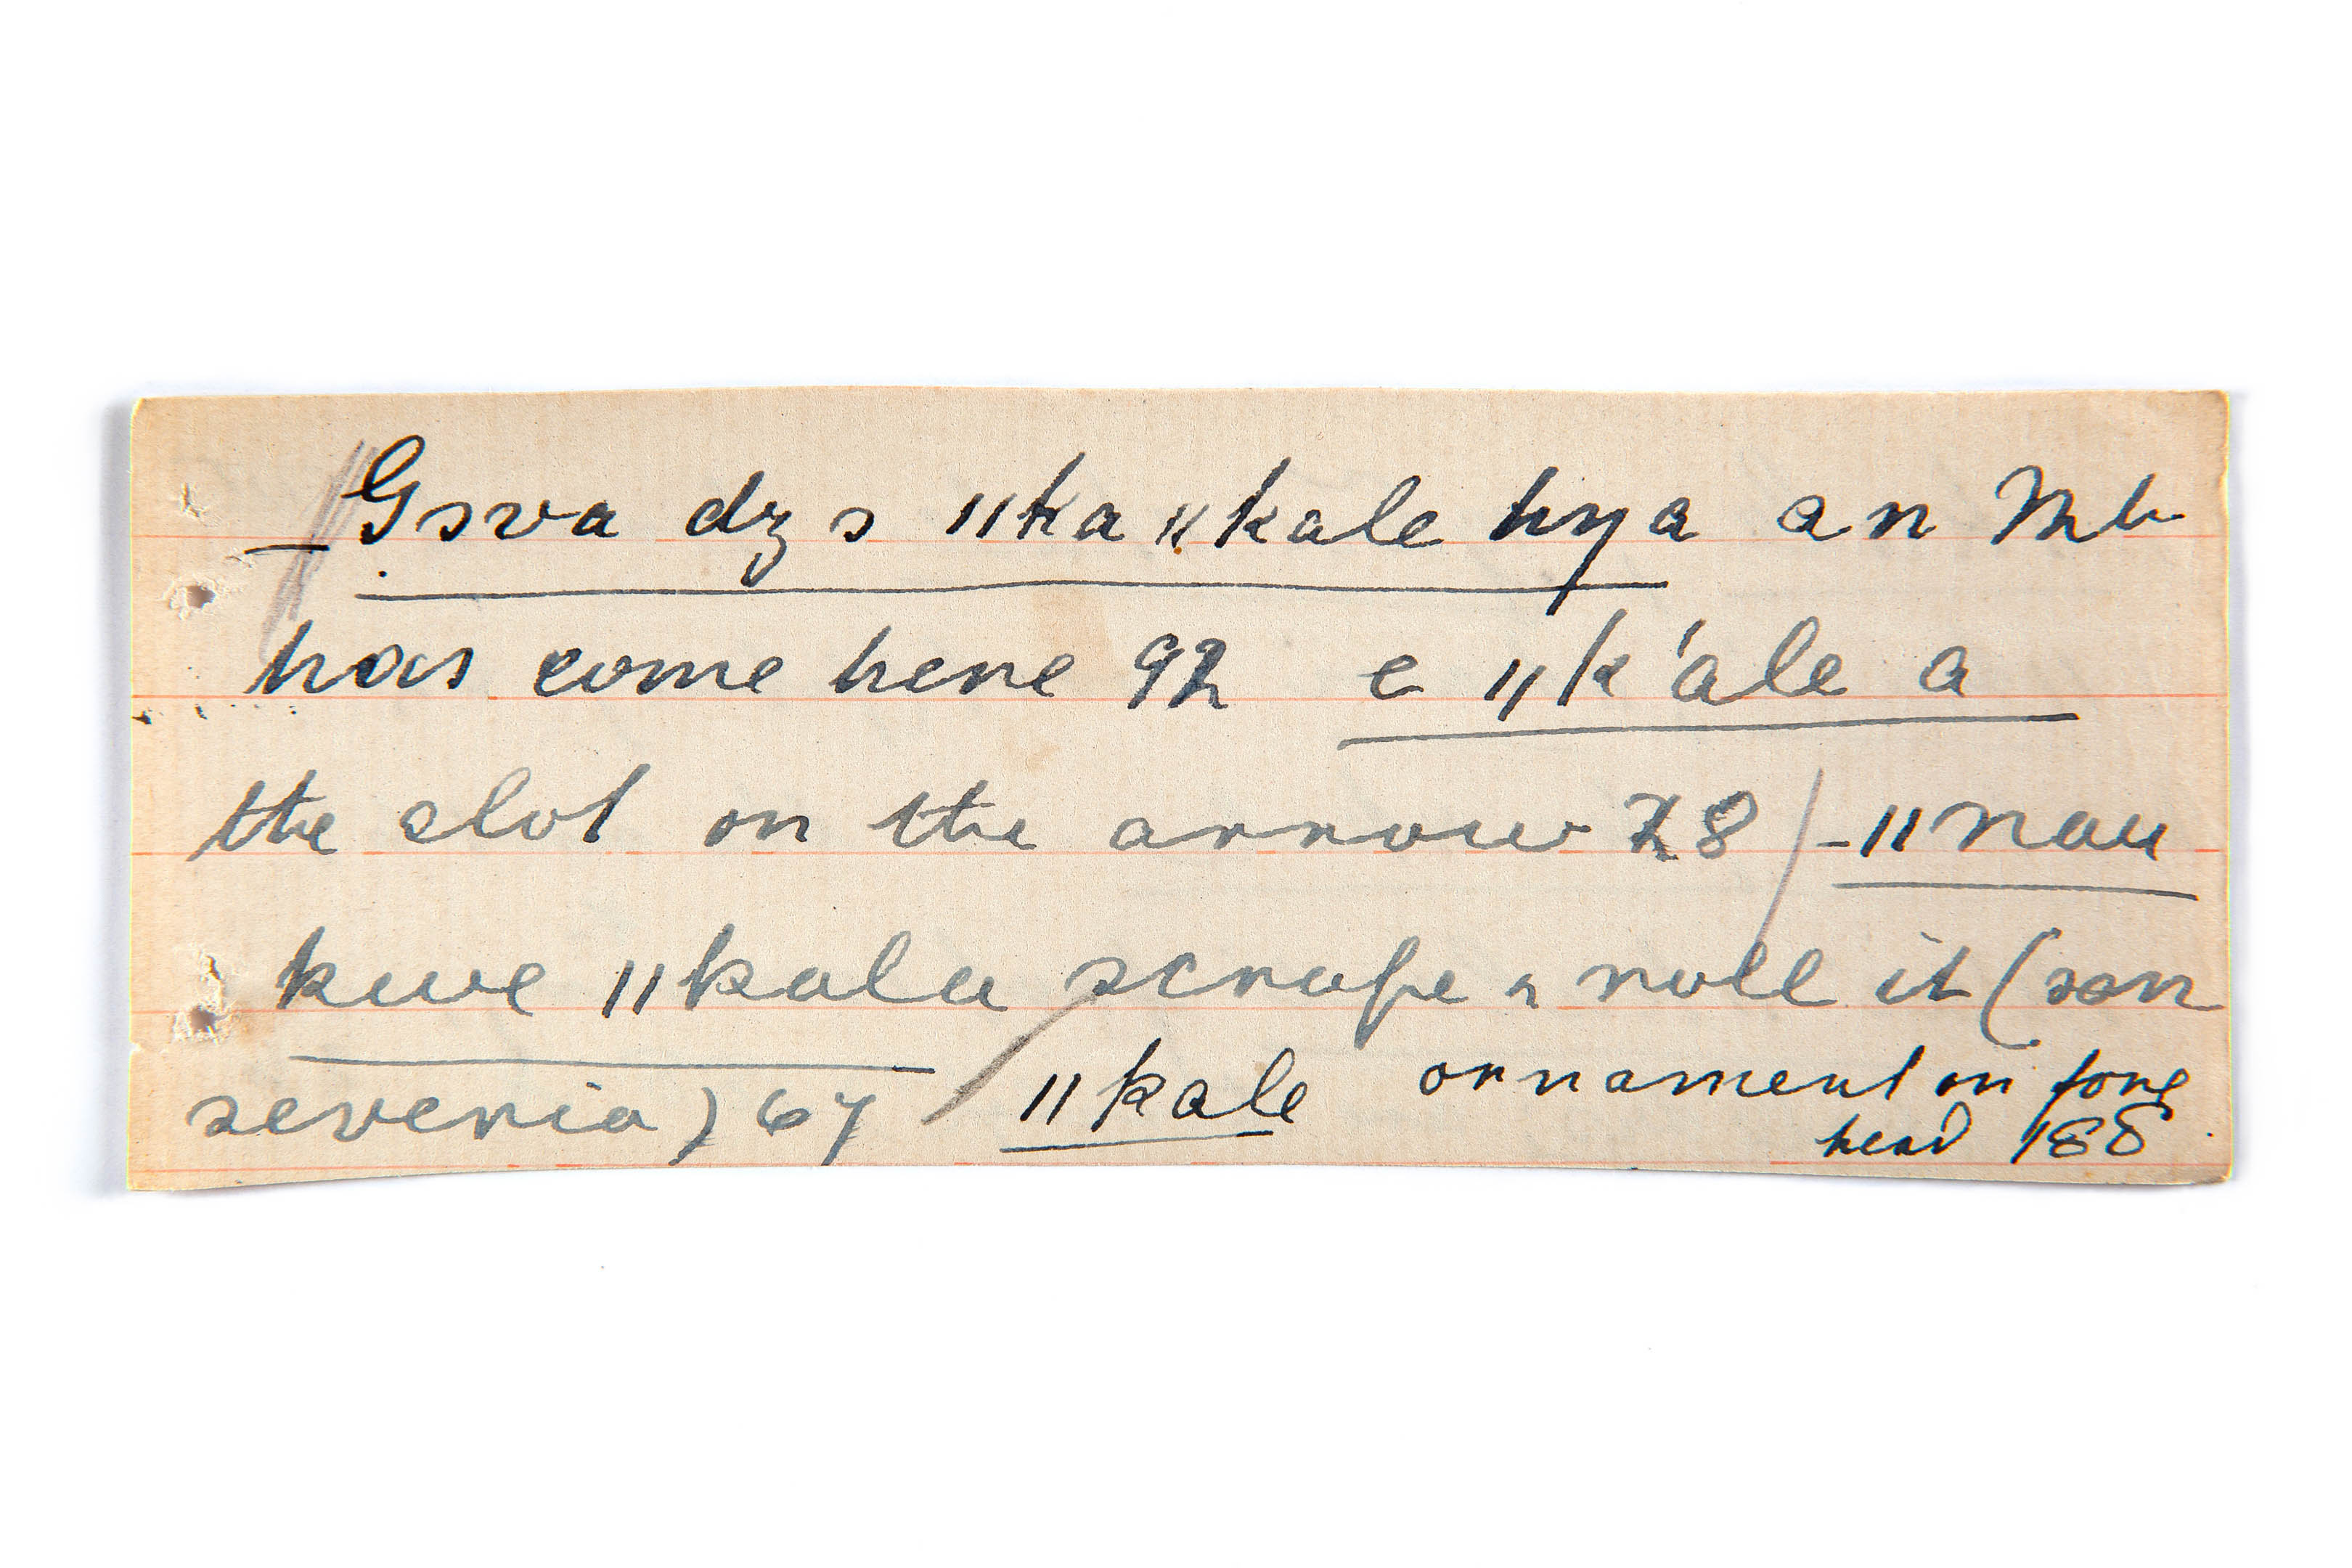 Gsva dzs ǁkaǁkale hŋa an Mb
has come here 92 e ǁk'ale a
the slot on the arrow 28 / -ǁnau
kwe ǁkala scrape & roll it (san
severia) 67 / ǁkale ornament on fore
head 188